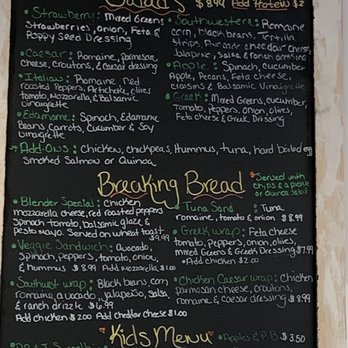 Salads $8.99 Add Protein $2
• Strawberri: Mixed Greens
Strawberries, Onion, Feta &
Poppy Seed Dressing
• Caesar: Romaine, parmesan
cheese, croutons, & Caesar dressing
• Italian: Romaine, Red
roasted Peppers, Artichoke, olives
tomato, Mozzarella, & Balsamic
Vinaigrette
• Edamame: Spinach, Edamame
Beans, Carrots, Cucumber & Soy
Vinaigrette
• Southwestern: Romaine
corn, black beans, Tortilla
Strips, cheddar cheese,
Jalapeño, Salsa, & ranch dressing
• Apple: Spinach, cucumber
Apple, Pecans, Feta cheese,
craisins & Balsamic Vinaigrette
• Greek: Mixed Greens, cucumber,
Tomato, peppers, onion, olives,
Feta cheese & Greek Dressing
Add-Ons: Chicken, chickpeas, Hummus, tuna, hard boiled egg
Smoked Salmon or Quinoa
Breaking Bread
*Served with
chips & a pickle
or Quinoa Salad
• Blender Special: Chicken
mozzarella cheese, red roasted peppers
Spinach tomato, balsamic glaze &
pesto mayo. Served on wheat toast
$9.99
• Veggie Sandwich: Avocado,
Spinach, peppers, tomato, onion,
& hummus $8.99 Add Mozzarella $1.00
• Southwest wrap: Black beans, corn
romaine, avocado, jalapeño, salsa,
& ranch drizzle $6.99
Add chicken $2.00 Add cheddar cheese $1.00
• Tuna Sand: Tuna
romaine, tomato & onion $8.99
• Greek wrap: Feta cheese
tomato, Peppers, onion, olives,
mixed Greens & Greek Dressing $7.99
• Add chicken $2.00
• Chicken Caesar wrap: Chicken
parmesan cheese, croutons,
Romaine, & Caesar dressing $8.99
Kids Menu
• Apples & P.B. $3.50